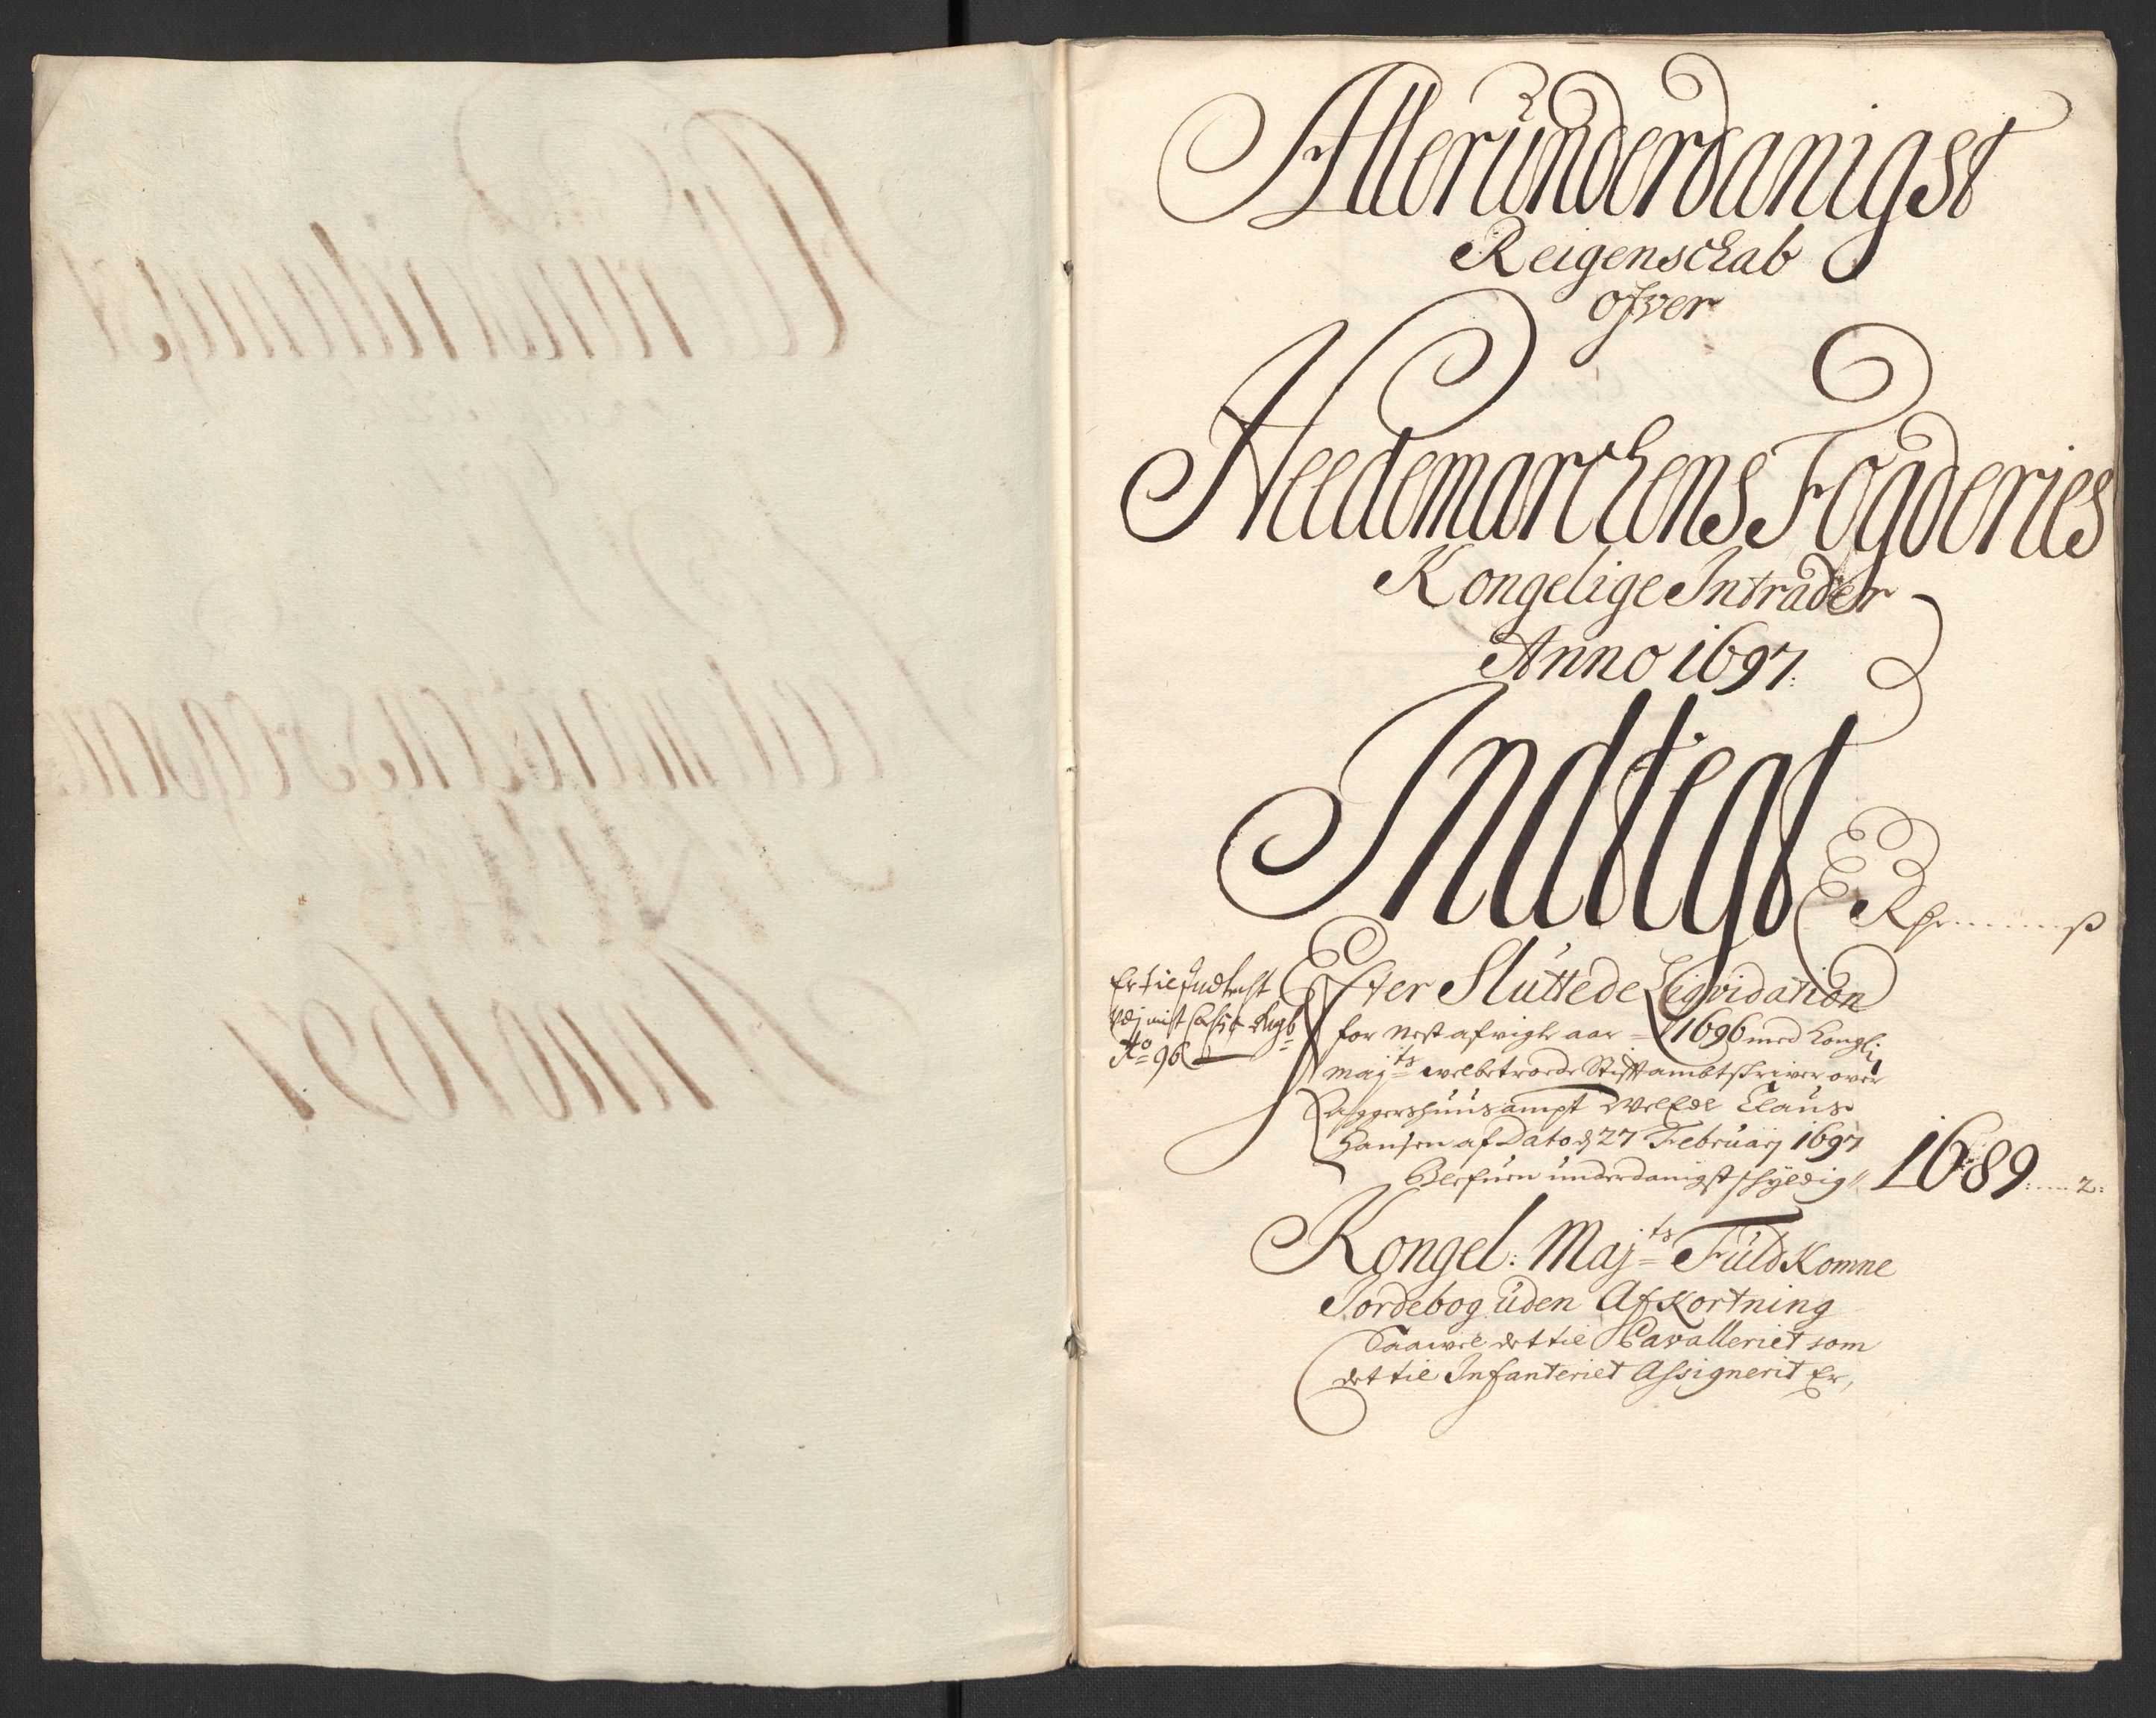 Allerunderdanigst
Reigenschab
ofver
Heedemarchens Fogderies
Kongelige Intrader
Anno 1697:
Indtegt
Rdr ........ ß
Er til Indtegt
A:o 96
Efter Sluttede Liqvidation
for nest afvigte aar = 1696 med Kongli:
maj:ts welbetroede Stifftambtskriver over
Aggershuus ampt Wel Edl Claus
Hansen af Dato d 27 Februarj 1697
Blefuen underdanigst schyldig // 1689 : .... 2:
Kongel: Maj:ts Fuldkomne
Jordebog uden Afkortning
Saavel det til Cavalleriet som
det til Infanteriet Assignerit Er,